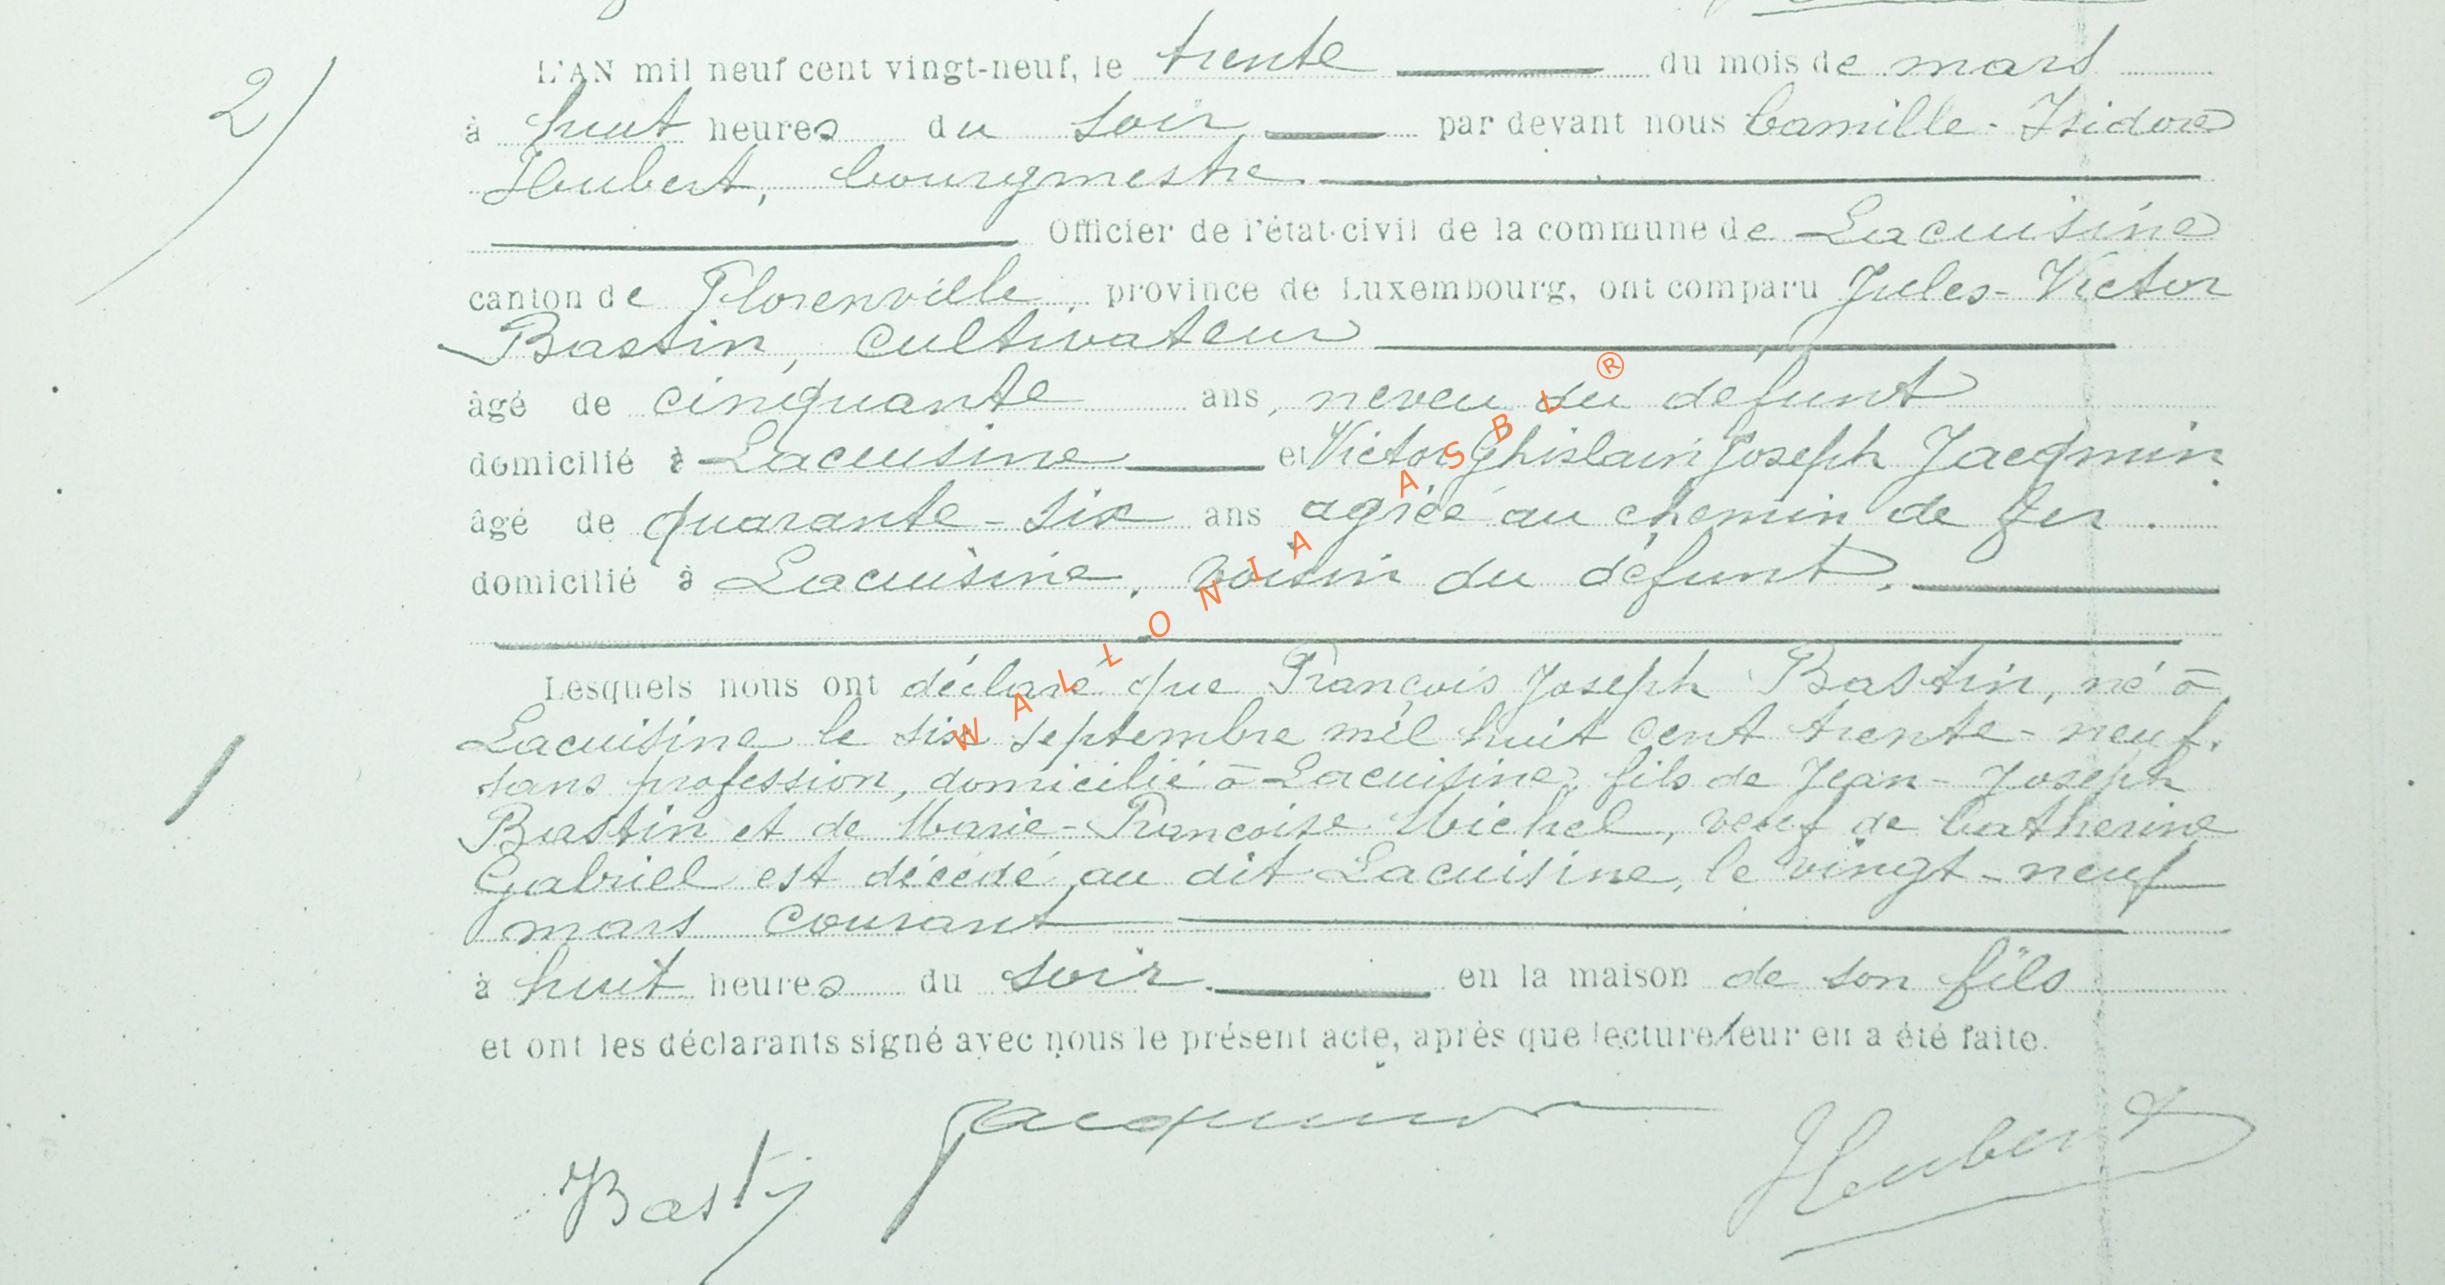 2)
L'AN mil neuf cent vingt-neuf, le trente du mois de mars
à huit heures du soir par devant nous Camille-Isidore
Hubert, bourgmestre
Officier de l'état-civil de la commune de Lacuisine
canton de Florenville province de Luxembourg, ont comparu Jules-Victor
Bastin, cultivateur
âgé de cinquante ans, neveu du défunt
domicilié à Lacuisine et Victor Ghislain Joseph Jacqmin
âgé de quarante-six ans agréé au chemin de fer.
domicilié à Lacuisine, voisin du défunt.
WALLONIA ASBL ®
Lesquels nous ont déclaré que François Joseph Bastin, né à
Lacuisine le six septembre mil huit cent trente-neuf.
sans profession, domicilié à Lacuisine, fils de Jean-Joseph
Bastin et de Marie-Françoise Michel, veuf de Catherine
Gabriel est décédé au dit Lacuisine, le vingt-neuf
mars courant
1
à huit heures du soir. en la maison de son fils
et ont les déclarants signé avec nous le présent acte, après que lecture leur en a été faite.
Jacqmin
Hubert
Bastin